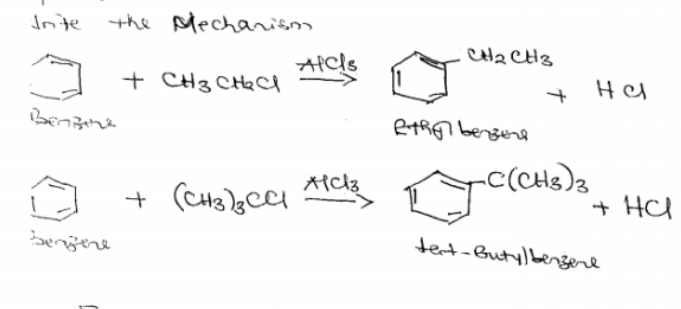 the Mechanism
+ CH3CH2Cl AlCl3 CH2CH3 + HCl
Benzene Ethyl benzene
+ (CH3)3CCl AlCl3 C(CH3)3 + HCl
benzene tert-Butylbenzene